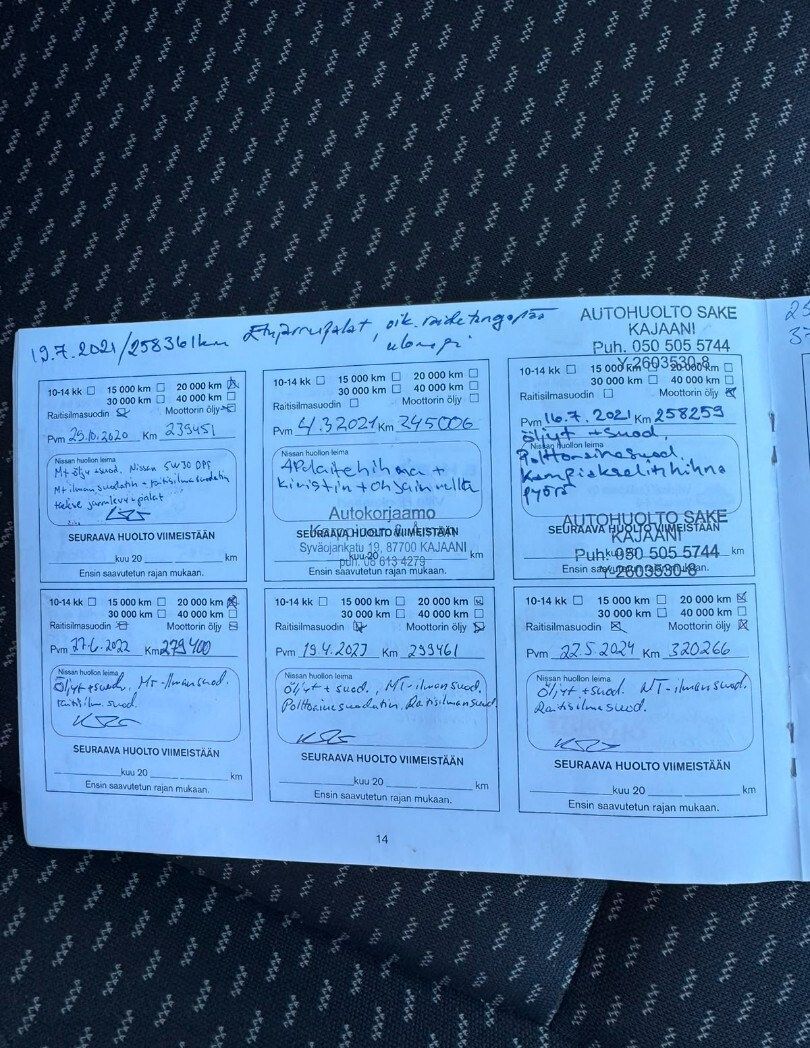 19.7.2021/258361km Etujarrupalat, oik. raidetangonpää
ulompi
AUTOHUOLTO SAKE
KAJAANI
Puh. 050 505 5744
Y-2603530-8
10-14 kk 15 000 km 20 000 km
30 000 km 40 000 km
Raitisilmasuodin Moottorin öljy
Pvm 29.10.2020 Km 239451
Nissan huollon leima
Mt öljy + suod. Nissan 5W30 DPF
Mt ilmansuodatin + raitisilmasuodatin
jarrulevy + palat
SEURAAVA HUOLTO VIIMEISTÄÄN
kuu 20 km
Ensin saavutetun rajan mukaan.
10-14 kk 15 000 km 20 000 km
30 000 km 40 000 km
Raitisilmasuodin Moottorin öljy
Pvm 4.3.2021 Km 245006
Nissan huollon leima
Apulaitehihna +
kiristin + ohjainrulla
Autokorjaamo
Syväojankatu 19, 87700 KAJAANI
puh. 08 613 4279
SEURAAVA HUOLTO VIIMEISTÄÄN
kuu 20 km
Ensin saavutetun rajan mukaan.
10-14 kk 15 000 km 20 000 km
30 000 km 40 000 km
Raitisilmasuodin Moottorin öljy
Pvm 16.7.2021 Km 258259
Nissan huollon leima
öljyt + suod,
Polttoainesuod.
Kampiakselin hihna
pyörä
AUTOHUOLTO SAKE
KAJAANI
Puh. 050 505 5744
Y-2603530-8
SEURAAVA HUOLTO VIIMEISTÄÄN
kuu 20 km
Ensin saavutetun rajan mukaan.
10-14 kk 15 000 km 20 000 km
30 000 km 40 000 km
Raitisilmasuodin Moottorin öljy
Pvm 27.6.2022 Km 279400
Nissan huollon leima
Öljyt + suod., MT-ilmansuod.
raitisilm. suod.
SEURAAVA HUOLTO VIIMEISTÄÄN
kuu 20 km
Ensin saavutetun rajan mukaan.
10-14 kk 15 000 km 20 000 km
30 000 km 40 000 km
Raitisilmasuodin Moottorin öljy
Pvm 19.4.2023 Km 299461
Nissan huollon leima
Öljyt + suod., MT-ilmansuod.
Polttoainesuodatin, Raitisilmansuod.
SEURAAVA HUOLTO VIIMEISTÄÄN
kuu 20 km
Ensin saavutetun rajan mukaan.
10-14 kk 15 000 km 20 000 km
30 000 km 40 000 km
Raitisilmasuodin Moottorin öljy
Pvm 22.5.2024 Km 320266
Nissan huollon leima
Öljyt + suod. MT-ilmansuod.
Raitisilmasuod.
SEURAAVA HUOLTO VIIMEISTÄÄN
kuu 20 km
Ensin saavutetun rajan mukaan.
14